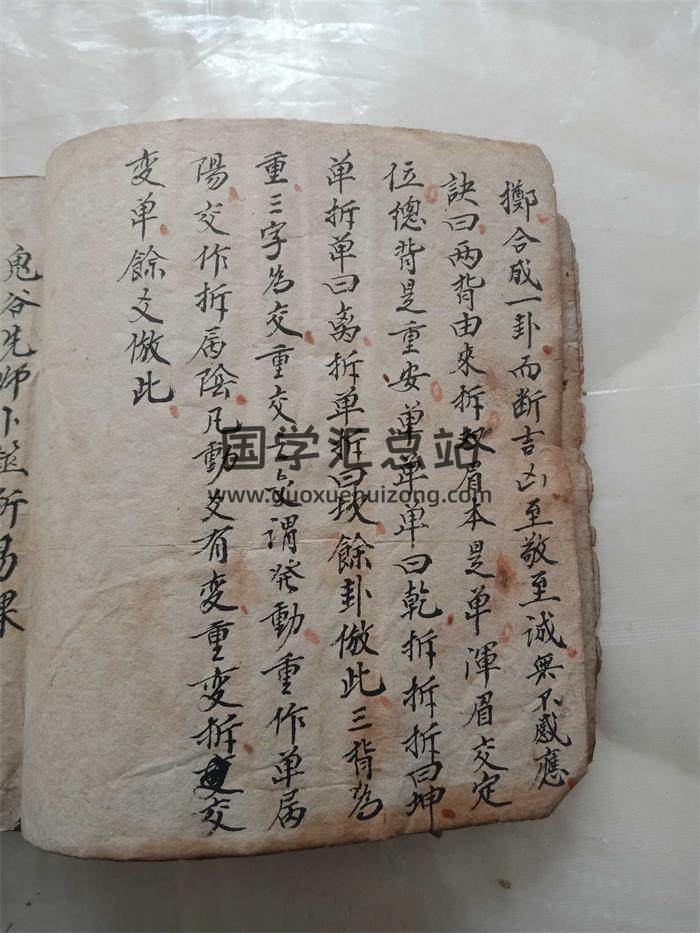 擲合成一卦而断吉凶至敬至诚無不感應
訣曰两背由來拆双眉本是单渾眉交定
位總背是重安单单单曰乾拆拆拆曰坤
单拆单曰离拆单拆曰坎餘卦倣此三背為
重三字為交重交之爻謂発動重作单属
陽交作拆属陰凡動爻有变重变拆交
变单餘爻倣此
鬼谷先师卜筮所易課
国学汇总站
www.guoxuehuizong.com